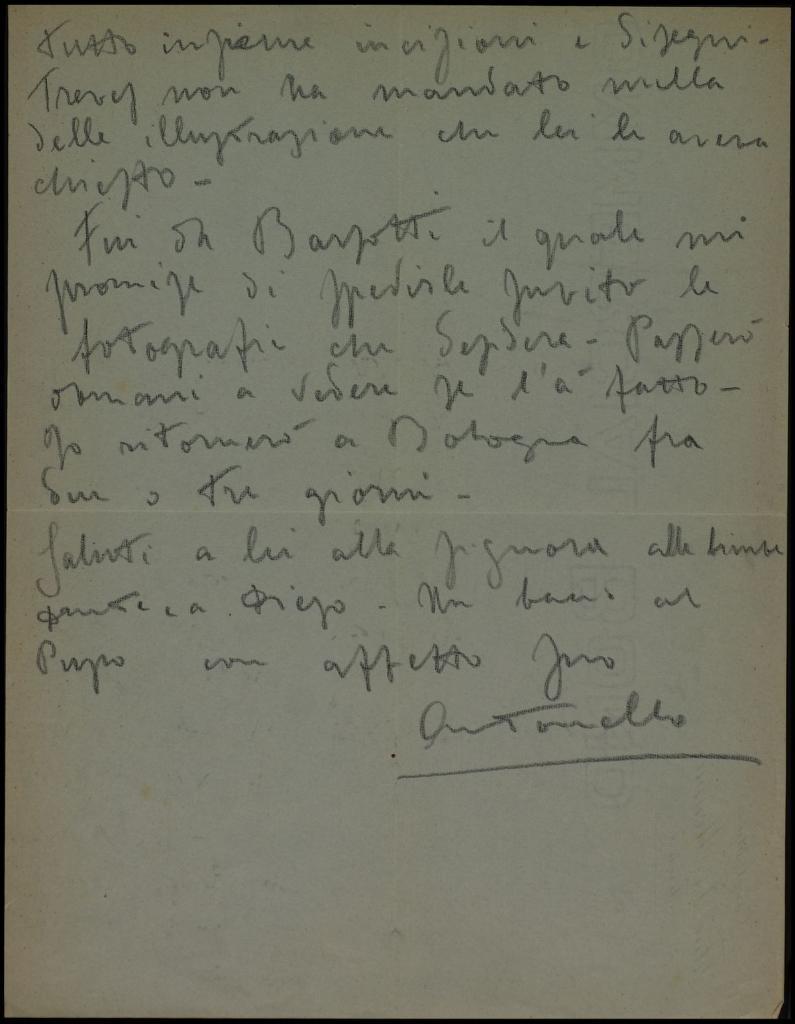 tutto insieme incisioni e disegni -
Treves non ha mandato nulla
delle illustrazione che lei le aveva
chiesto -
Fui da Barsotti il quale mi
promise di spedirle subito le
fotografie che desidera - Passerò
domani a vedere se l'à fatto -
Io ritornerò a Bologna fra
due o tre giorni -
Saluti a lei alla signora alle bimbe
a Diego - Un bacio al
Pupo con affetto suo
Antonello